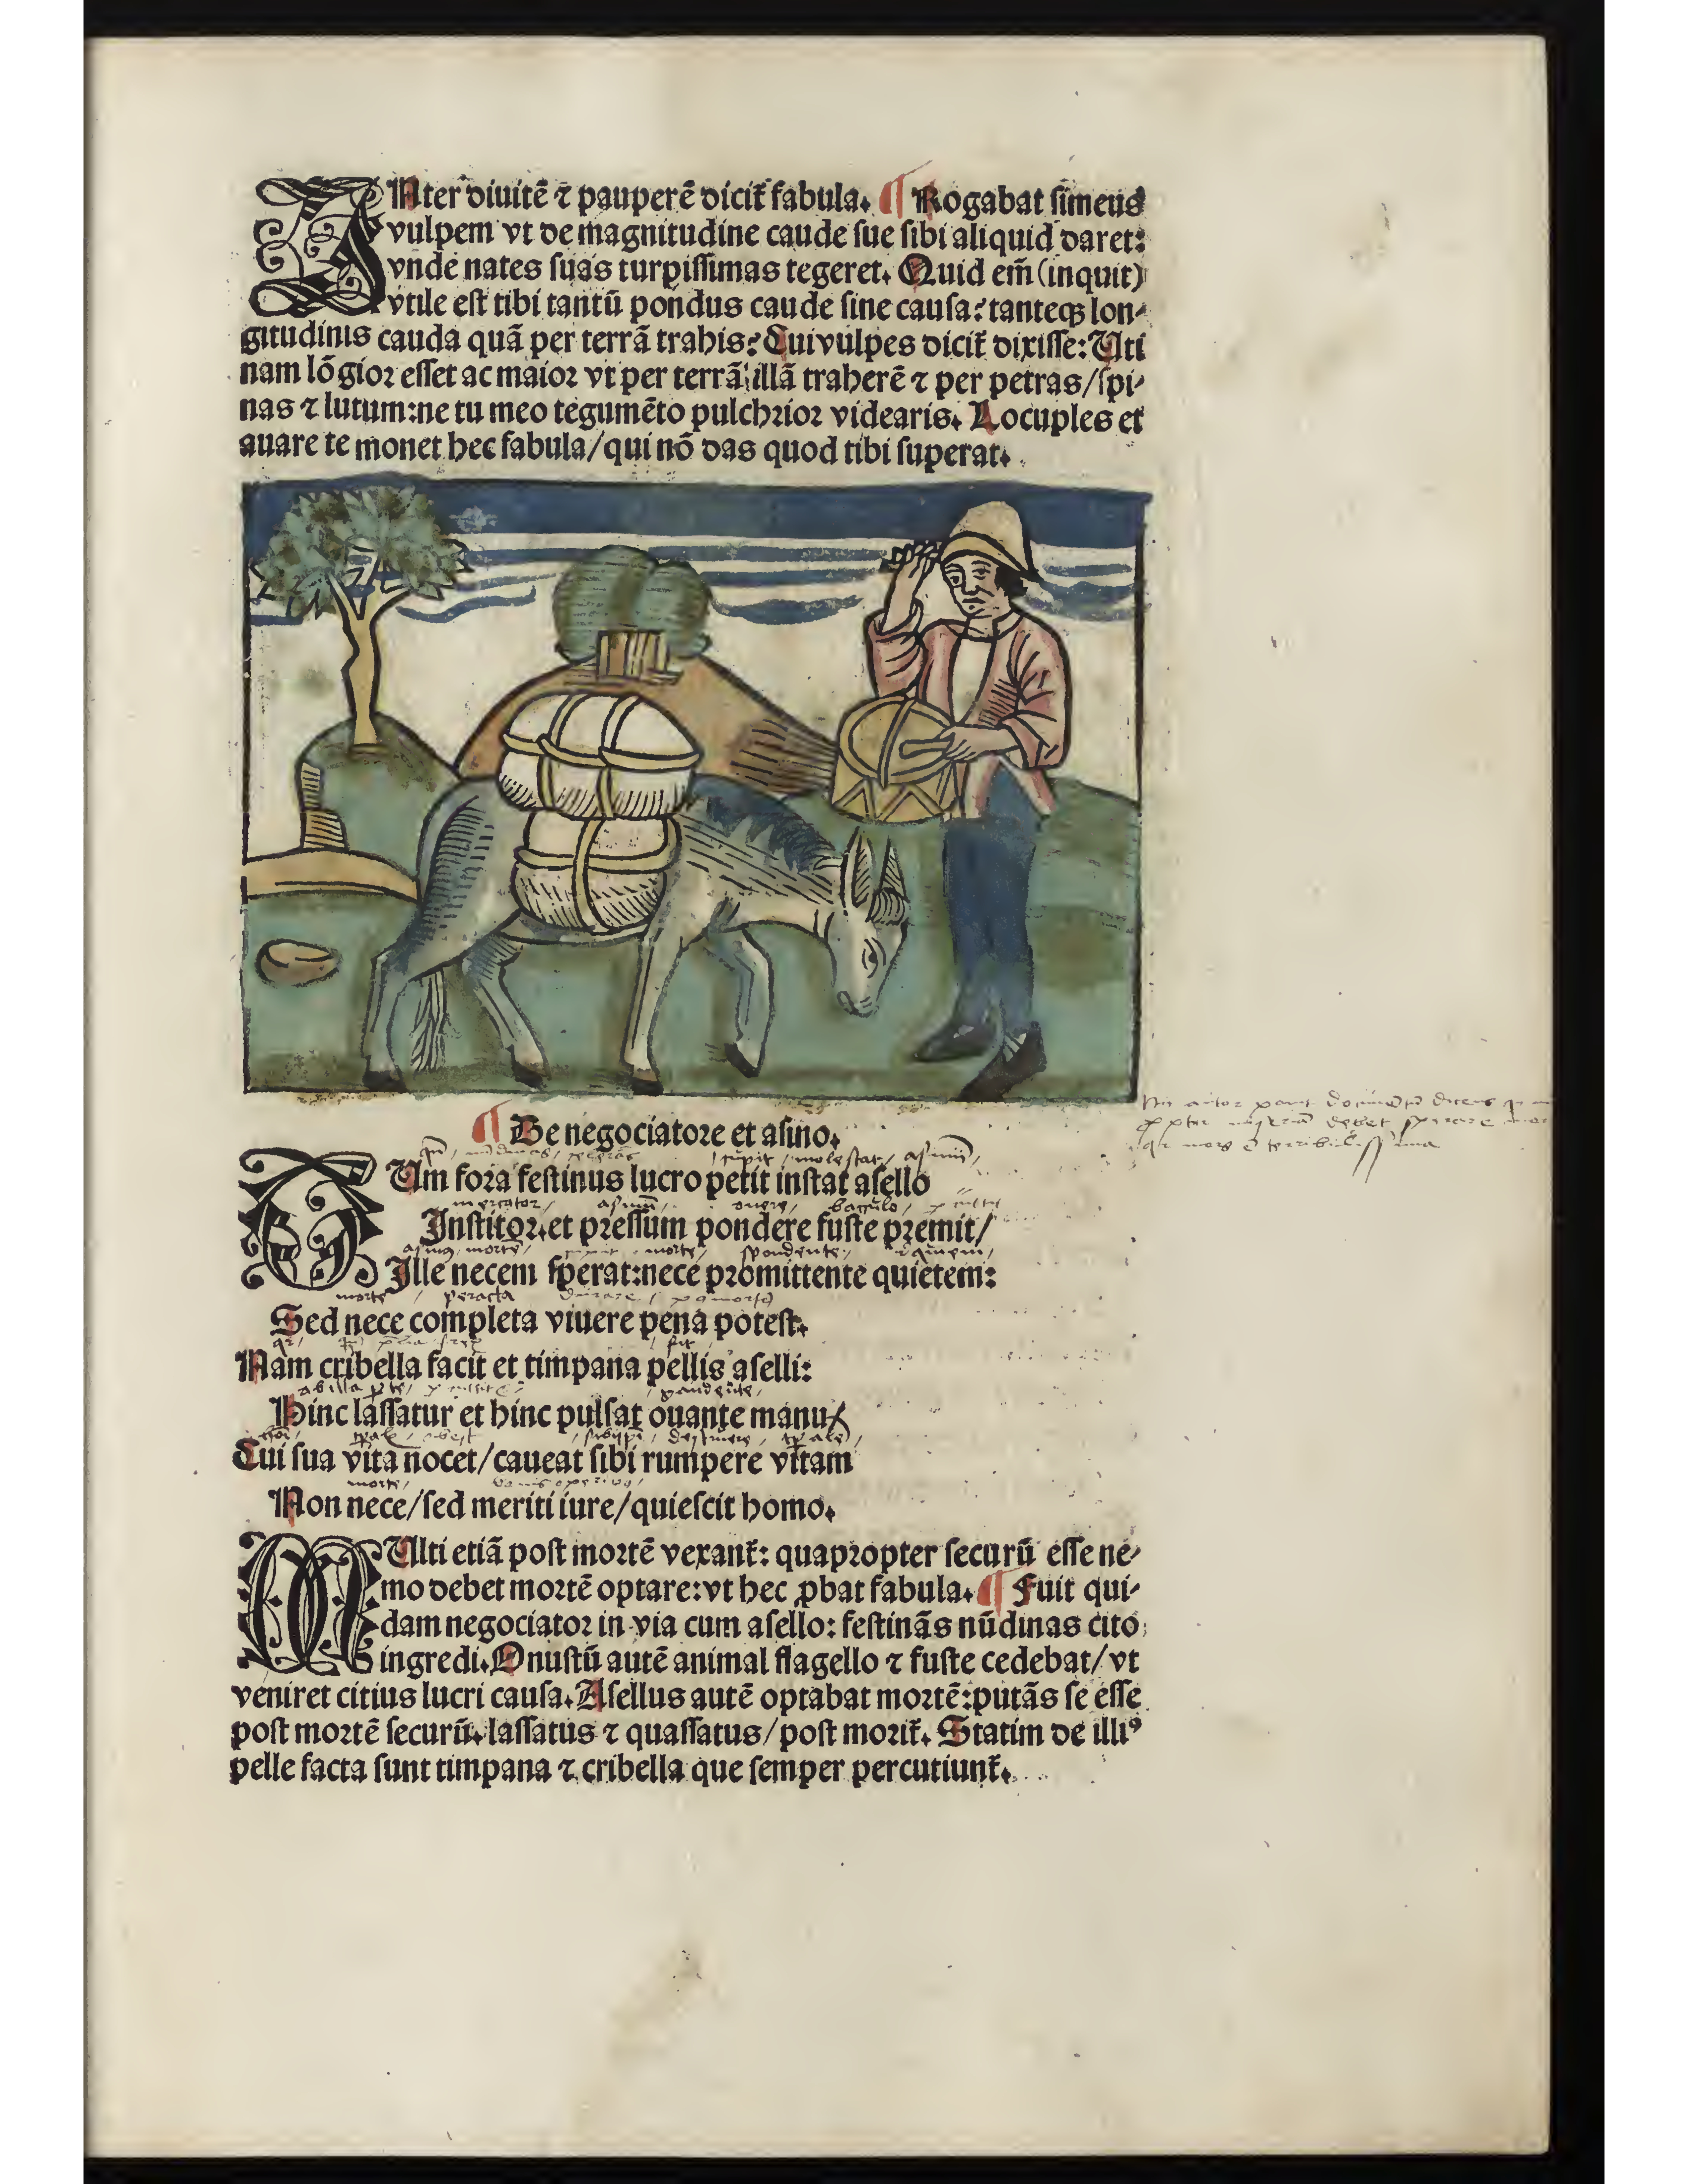 INter diuitē ⁊ pauperē dicit̄ fabula. ¶ Rogabat simeus
vulpem vt de magnitudine caude sue sibi aliquid daret:
vnde nates suas turpissimas tegeret. Quid em̄ (inquit)
vtile est tibi tantū pondus caude sine causa? tanteqꝫ lon-
gitudinis cauda quā per terrā trahis? Cui vulpes dicit̄ dixisse: Uti
nam lōgior esset ac maior vt per terrā illā traherē ⁊ per petras/spi-
nas ⁊ lutum: ne tu meo tegumēto pulchrior videaris. Locuples et
auare te monet hec fabula/qui nō das quod tibi superat.
¶ De negociatore et asino.
cupit, molestat, asinū,
CUm fora festinus lucro petit instat asello
mercator, asinū, onere, baculo,
Institor. et pressum pondere fuste premit/
asinus, mortē, morte, spondente,
Ille necem sperat: nece promittente quietem:
morte, peracta
Sed nece completa viuere pena potest.
Nam cribella facit et timpana pellis aselli:
gaudēte,
Hinc lassatur et hinc pulsat ouante manu/
Cui sua vita nocet/caueat sibi rumpere vitam
morte,
Non nece/sed meriti iure/quiescit homo.
Hic autor ponit documētū dicens
debet
terribilissima
MUlti etiā post mortē vexant̄: quapropter securū esse ne-
mo debet mortē optare: vt hec ꝓbat fabula. ¶ Fuit qui-
dam negociator in via cum asello: festinās nūdinas cito
ingredi. Onustū autē animal flagello ⁊ fuste cedebat/vt
veniret citius lucri causa. Asellus autē optabat mortē: putās se esse
post mortē securū. lassatus ⁊ quassatus/post morit̄. Statim de illiꝰ
pelle facta sunt timpana ⁊ cribella que semper percutiunt̄.